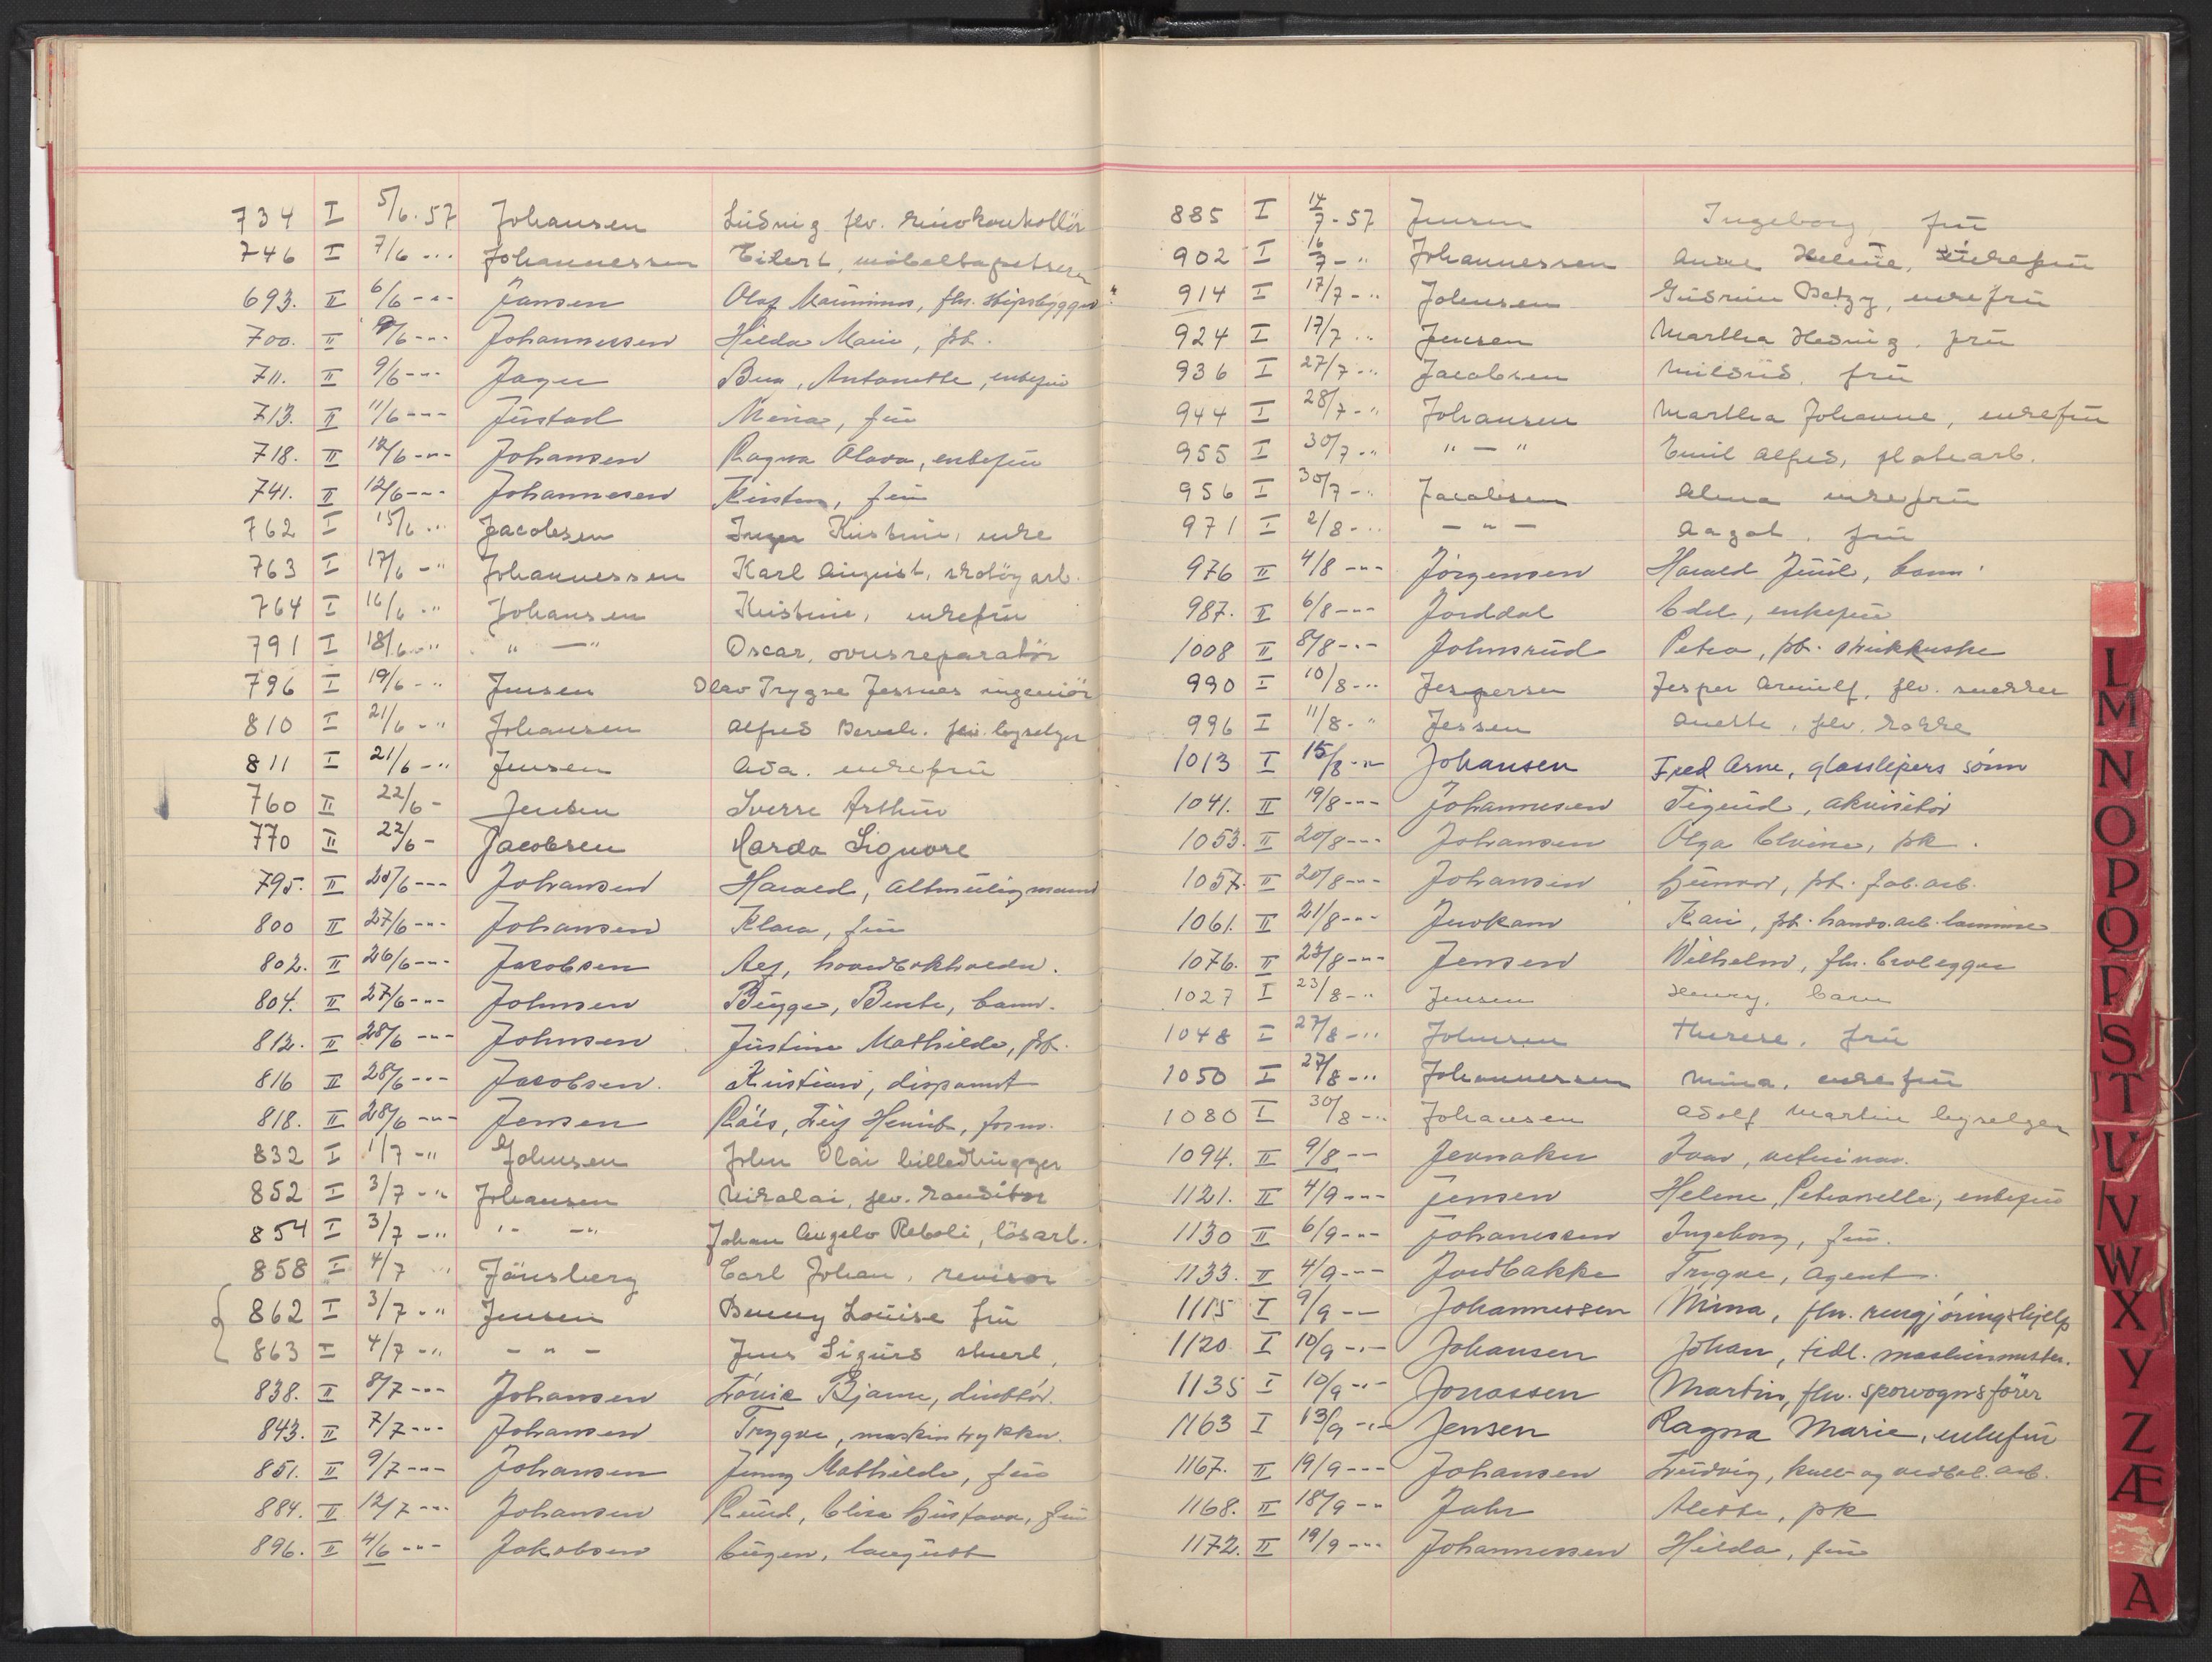 734 I 5/6.57 Johansen Ludvig flv. kinokontrollör
746 I 7/6 -" Johannessen Eilert, möbeltapetserer
693. II 6/6 -"- Jansen Olaf Maurinius, fhv. skipsbygger
700. II 9/6 -"- Johannessen Hilda Marie, pk.
711. II 9/6 -"- Jager Antonette, enkefru
713. II 11/6 -"- Justad Mina, fru
718. II 12/6 -"- Johansen Ragna Olava, enkefru
741. II 12/6 -"- Johannesen Kirsten, fru
762 I 15/6 -" Jacobsen Inger Kristine, enke
763 I 17/6 -" Johannessen Karl August, skotöyarb.
764 I 16/6 -" Johansen Kristine, enkefru
791 I 18/6 -" " — " Oscar, ovnsreparatör
796 I 19/6 -" Jensen Olav Trygve Jessnes ingeniör
810 I 21/6 -" Johansen Alfred Bernh. flv. byselger
811 I 21/6 -" Jensen Ada. enkefru
760 II 22/6 - Jensen Sverre Arthur
770 II 22/6 - Jacobsen Harda Signore
795. II 25/6 -"- Johansen Harald, altmuligmann
800 II 27/6 -"- Johansen Klara, fru
802. II 26/6 -"- Jacobsen hovedbokholder.
804. II 27/6 -"- Johnsen Bugge, Bente, barn.
812. II 28/6 -"- Johnsen Justine Mathilde, pk.
816 II 28/6 -"- Jacobsen. Kristian, disponent
818. II 28/6 -"- Jensen Leif Henrik, form.
832 I 1/7 -" Johnsen John Olai billedhugger
852 I 3/7 -" Johansen Nikolai, flv. konditor
854 I 3/7 -" " - " Johan Angelo Reboli, lösarb.
858 I 4/7 " Jönsberg Carl Johan, revisor
862 I 3/7 -" Jensen Benny Louise fru
863 I 4/7 -" - " - Jens Sigurd stuert,
838. II 8/7 -"- Johansen Bjarne, direktör.
843. II 7/7 -"- Johansen Trygve, maskintrykker.
851. II 9/7 -"- Johansen Jenny Mathilde, fru
884. II 12/7 -"- Johansen Ruud, Elisa Gustava, fru
896. II 4/6 -"- Jakobsen Eugen, August
885 I 14/7 - 57 Jensen Ingeborg, fru
902 I 16/7 -" Johannessen Anne Helene, enkefru
914 I 17/7 -" Johnsen Gudrun Betzy, enkefru
924 I 17/7 -" Jensen Martha Hedvig, fru
936 I 27/7 -" Jacobsen Mildrid, fru
944 I 28/7 -" Johansen Martha Johanne, enkefru
955 I 30/7 -" " — " Emil Alfred, platearb.
956 I 30/7 -" Jacobsen Alma enkefru
971 I 2/8 -" - " - Aagot, fru
976 II 4/8 -"- Jörgensen Harald Juul, barn.
987. II 6/8 -"- Jorddal Edel, enkefru
1008 II 8/8 -"- Johnsrud Petra, pk. strikkerske
990 I 10/8 -" Jespersen Jesper Arnulf, flv. snekker
996 I 11/8 -" Jessen Anette, flv. kokke
1013 I 15/8 -"- Johansen Fred Arne, glasslipers sönn
1041. II 19/8 -"- Johannesen Sigurd, akvisitör
1053. II 20/8 -"- Johansen Olga Elvine, pk.
1057. II 20/8 -"- Johansen Gunvor, pk. fab.arb.
1061. II 21/8 -"- Juvkam Kari, pk. handv.arb. lærerinne
1076. II 23/8 -"- Jensen Wilhelm, fhv. brolegger
1027 I 23/8 -" Jensen Henry, barn
1048 I 27/8 -" Johnsen Therese, fru
1050 I 27/8 -" Johannessen Mina, enkefru
1080 I 30/8 -" Johansen Adolf Martin byselger
1094. II 9/8 -- Jevnaker Ivar, veterinær.
1121. II 4/9 -"- Jensen Helene, Petronelle, enkefru
1130 II 6/9 -"- Johanessen Ingeborg, fru.
1133. II 4/9 -"- Jordbakke Trygve, agent.
1115 I 9/9 -- Johannessen Mina, fhv. rengjöringshjelp
1120 I 10/9 -"- Johansen Johan, tidl. maskinmester.
1135 I 10/9 -"- Jonassen Martin, fhv. sporvognsförer
1163 I 13/9 -"- Jensen Ragna Marie, enkefru
1167. II 19/9 -"- Johansen Ludvig, kull- og vedbel. arb.
1168. II 18/9 -"- Jahr Alette, pk
1172. II 19/9 -"- Johannessen Hilda, fru
L
M
N
O
P
Q
R
S
T
U
V
W
X
Y
Z
Æ
A